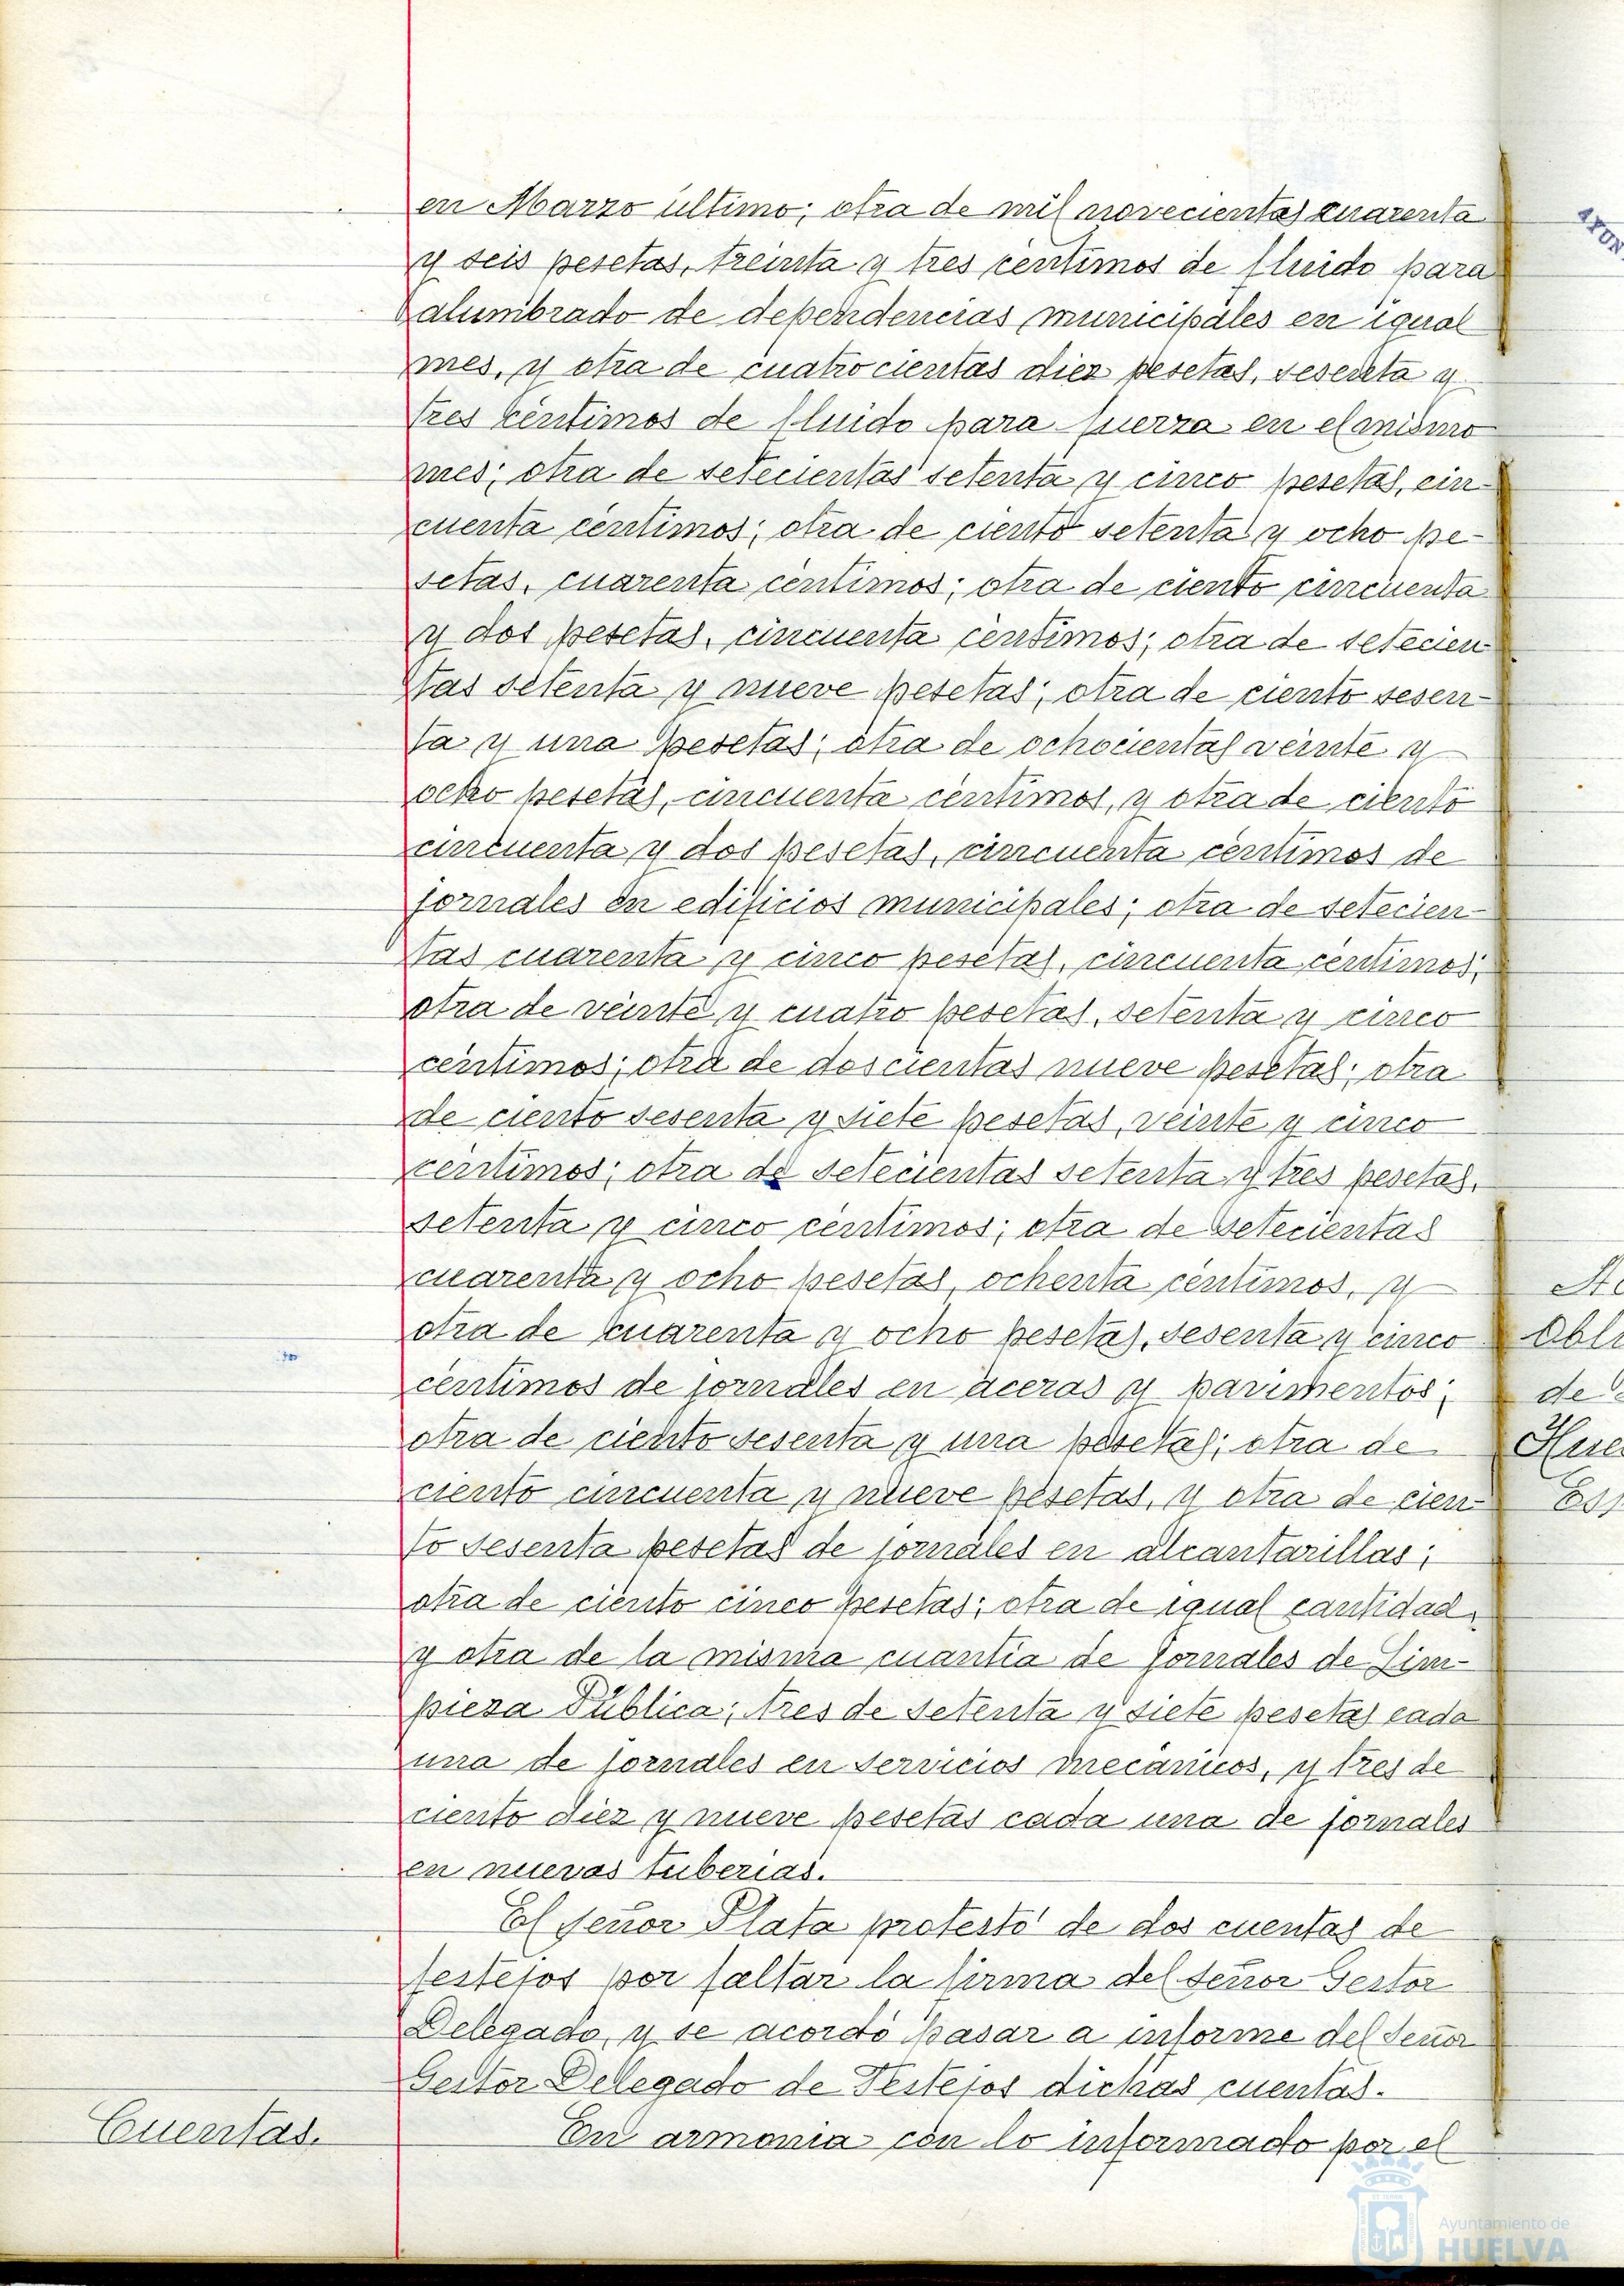 en Marzo último; otra de mil novecientas cuarenta
y seis pesetas, treinta y tres centimos de fluido para
alumbrado de dependencias municipales en igual
mes, y otra de cuatrocientas diez pesetas, sesenta y
tres céntimos de fluido para fuerza en el mismo
mes; otra de setecientas setenta y cinco pesetas, cin-
cuenta centimos; otra de ciento setenta y ocho pe-
setas, cuarenta centimos; otra de ciento cincuenta
y dos pesetas, cincuenta centimos; otra de setecien
tas setenta y nueve pesetas; otra de ciento sesen-
ta y una pesetas; otra de ochocientas veinte y
ocho pesetas, cincuenta centimos, y otra de ciento
cincuenta y dos pesetas, cincuenta centimos de
jornales en edificios municipales; otra de setecien-
tas cuarenta y cinco pesetas, cincuenta centimos;
otra de veinte y cuatro pesetas, setenta y cinco
céntimos; otra de doscientas nueve pesetas; otra
de ciento sesenta y siete pesetas, veinte y cinco
centimos; otra de setecientas setenta y tres pesetas,
setenta y cinco centimos; otra de setecientas
cuarenta y ocho pesetas, ochenta céntimos, y
otra de cuarenta y ocho pesetas, sesenta y cinco
céntimos de jornales en aceras y pavimentos;
otra de ciento sesenta y una pesetas; otra de
ciento cincuenta y nueve pesetas, y otra de cien-
to sesenta pesetas de jornales en alcantarillas;
otra de ciento cinco pesetas; otra de igual cantidad,
y otra de la misma cuantia de jornales de Lim-
pieza Pública; tres de setenta y siete pesetas cada
una de jornales en servicios mecánicos, y tres de
ciento diez y nueve pesetas cada una de jornales
en nuevas tuberias.
El señor Plata protestó de dos cuentas de
festejos por faltar la firma del señor Gestor
Delegado, y se acordó pasar a informe del señor
Gestor Delegado de Festejos dichas cuentas.
Cuentas.
En armonia con lo informado por el
Ayuntamiento de
HUELVA